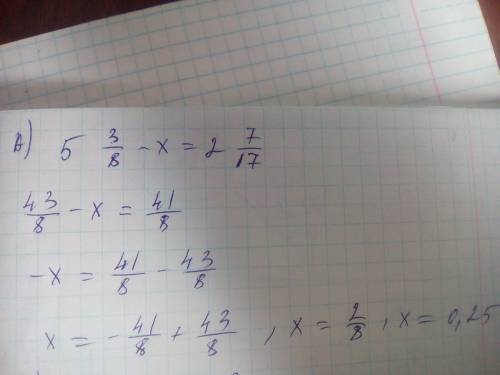 А) 5 3/8 - x = 2 7/17
43/8 - x = 41/8
-x = 41/8 - 43/8
x = - 41/8 + 43/8 , x = 2/8 , x = 0,25